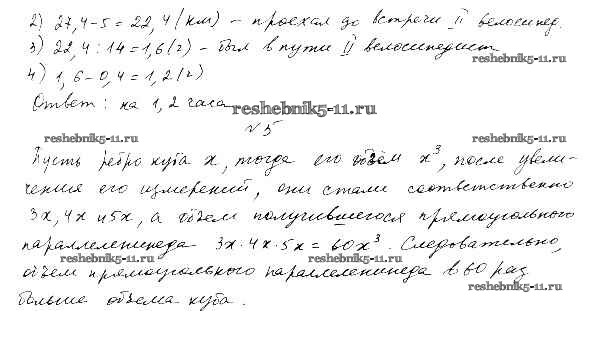 2) 27,4-5=22,4 (км) - проехал до встречи II велосипед.
3) 22,4:14=1,6 (ч) - был в пути II велосипедист
reshebnik5-11.ru
4) 1,6-0,4=1,2 (ч)
Ответ: на 1,2 часа
reshebnik5-11.ru
№5
reshebnik5-11.ru
reshebnik5-11.ru
Пусть ребро куба x, тогда его объём x³, после увели-
чения его измерений, они стали соответственно
3x, 4x и 5x, а объем получившегося прямоугольного
параллелепипеда 3x·4x·5x=60x³. Следовательно,
reshebnik5-11.ru
reshebnik5-11.ru
объем прямоугольного параллелепипеда в 60 раз
reshebnik5-11.ru
больше объема куба.